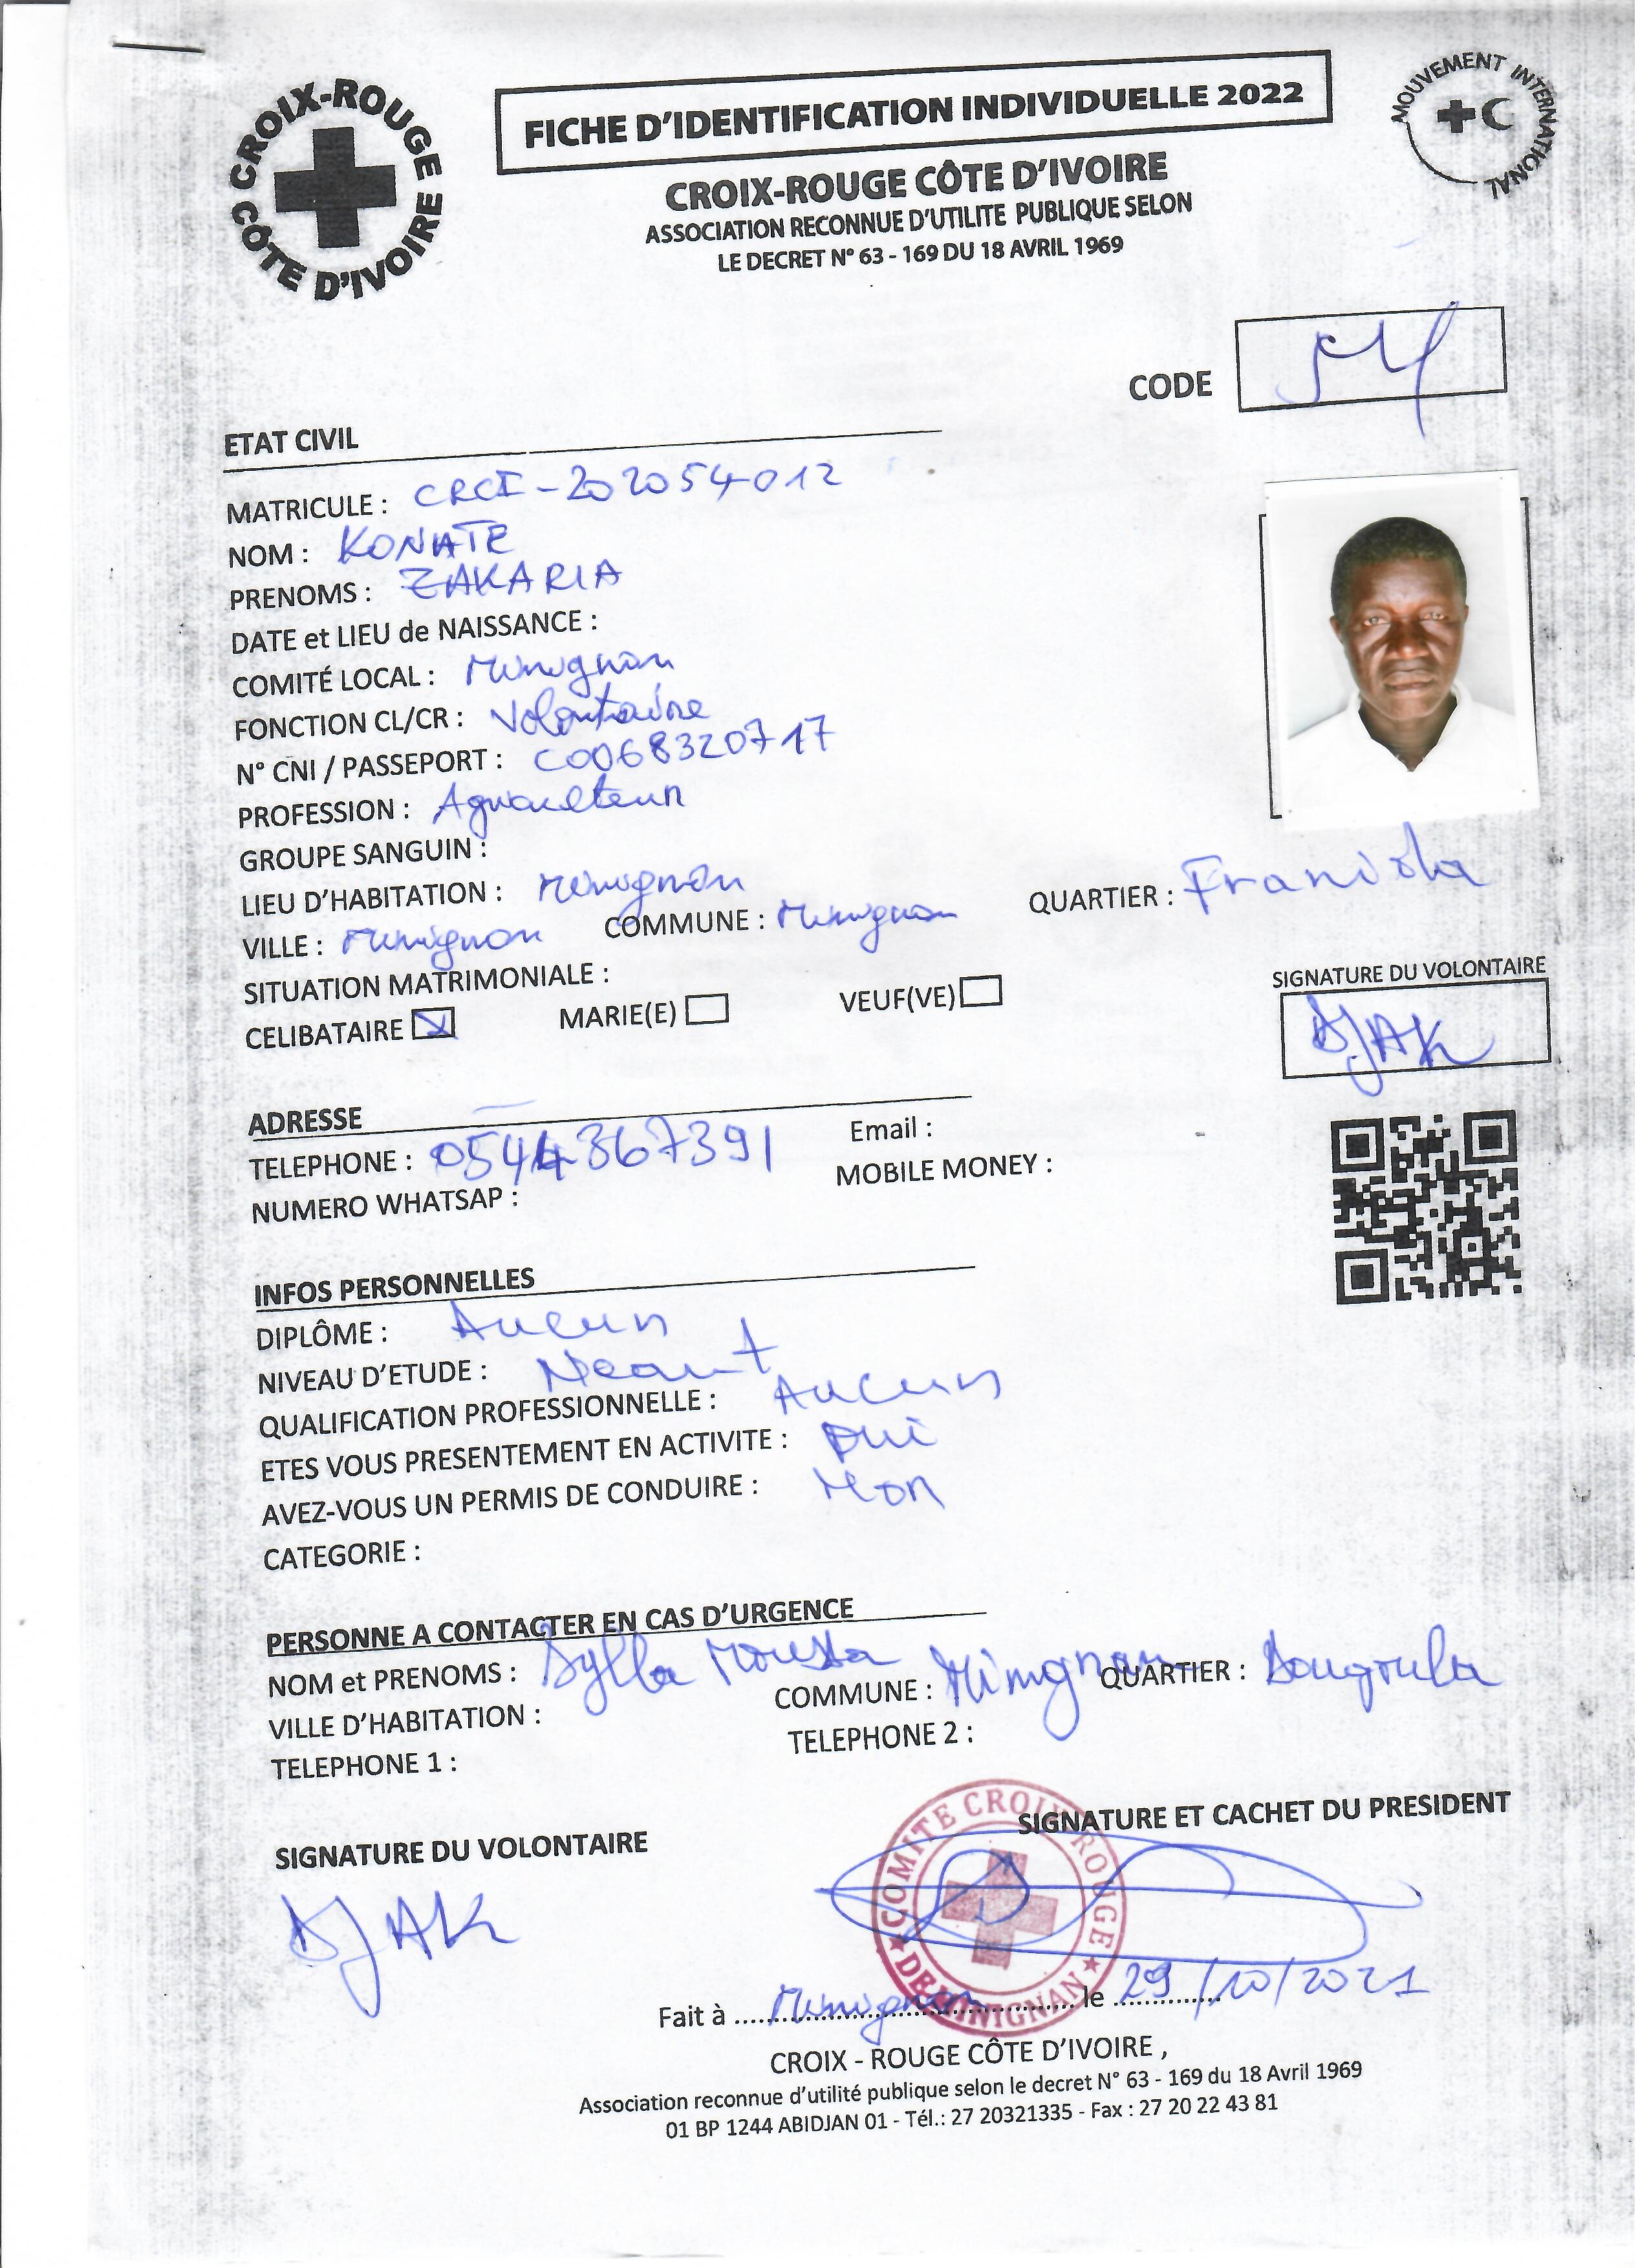 CROIX-ROUGE CÔTE D'IVOIRE
FICHE D'IDENTIFICATION INDIVIDUELLE 2022
MOUVEMENT INTERNATIONAL
CROIX-ROUGE CÔTE D'IVOIRE
ASSOCIATION RECONNUE D'UTILITE PUBLIQUE SELON
LE DECRET N° 63 - 169 DU 18 AVRIL 1969
CODE
ETAT CIVIL
MATRICULE : CRCI-202054012
NOM : KONATE
PRENOMS : ZAKARIA
DATE et LIEU de NAISSANCE :
COMITÉ LOCAL : Minignan
FONCTION CL/CR : Volontaire
N° CNI / PASSEPORT : C0068320717
PROFESSION : Agriculteur
GROUPE SANGUIN :
LIEU D'HABITATION : Minignan
QUARTIER :
VILLE : Minignan COMMUNE : Minignan
SITUATION MATRIMONIALE :
CELIBATAIRE MARIE(E) VEUF(VE)
SIGNATURE DU VOLONTAIRE
DJAK
ADRESSE
TELEPHONE : 0544367391 Email :
NUMERO WHATSAP : MOBILE MONEY :
INFOS PERSONNELLES
DIPLÔME : Aucun
NIVEAU D'ETUDE : Neant
QUALIFICATION PROFESSIONNELLE : Aucun
ETES VOUS PRESENTEMENT EN ACTIVITE : oui
AVEZ-VOUS UN PERMIS DE CONDUIRE : Non
CATEGORIE :
PERSONNE A CONTACTER EN CAS D'URGENCE
NOM et PRENOMS : Sylla Moussa
VILLE D'HABITATION : COMMUNE : Minignan QUARTIER :
TELEPHONE 1 : TELEPHONE 2 :
SIGNATURE DU VOLONTAIRE SIGNATURE ET CACHET DU PRESIDENT
DJAK
COMITE CROIX ROUGE DE MINIGNAN
Fait à Minignan le 29/10/2021
CROIX - ROUGE CÔTE D'IVOIRE ,
Association reconnue d'utilité publique selon le decret N° 63 - 169 du 18 Avril 1969
01 BP 1244 ABIDJAN 01 - Tél.: 27 20321335 - Fax : 27 20 22 43 81